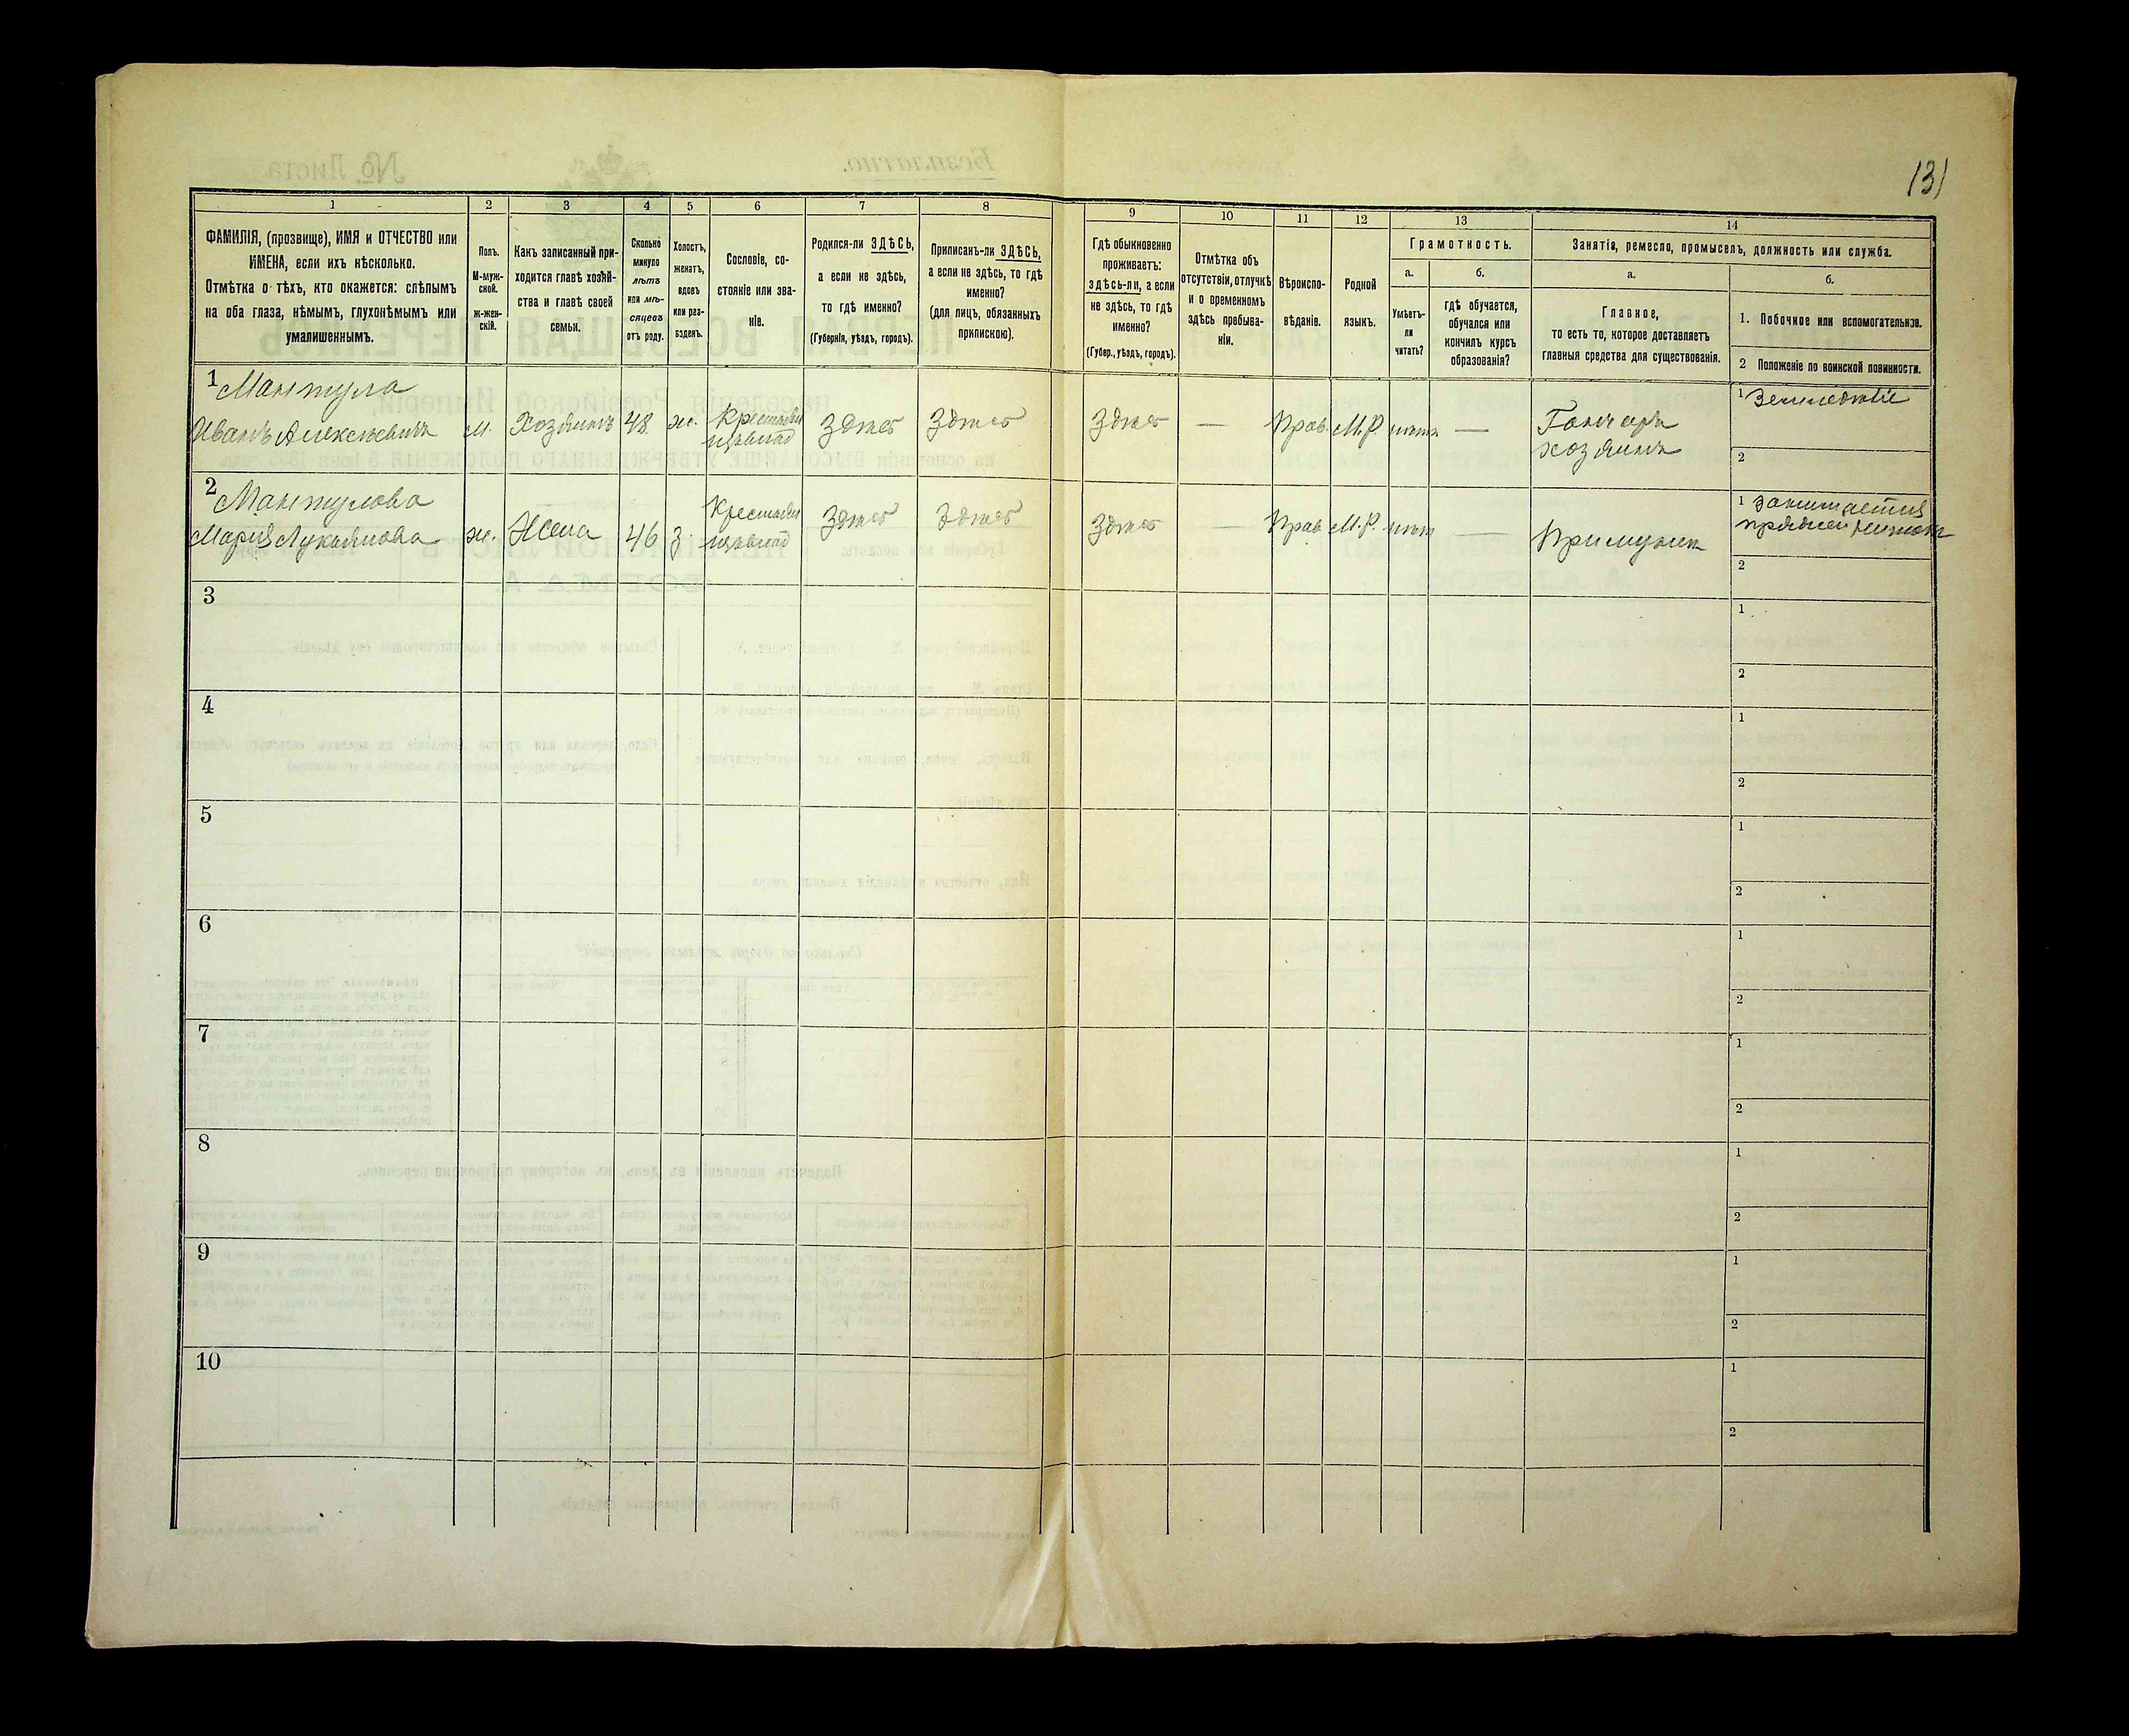 131
1
2
3
4
5
6
7
8
9
10
11
12
13
14
ФАМИЛІЯ, (прозвище), ИМЯ и ОТЧЕСТВО или
ИМЕНА, если ихъ нѣсколько.
Отмѣтка о тѣхъ, кто окажется: слѣпымъ
на оба глаза, нѣмымъ, глухонѣмымъ или
умалишеннымъ.
Полъ.
М-муж-
ской.
ж-жен-
скій.
Какъ записанный при-
ходится главѣ хозяй-
ства и главѣ своей
семьи.
Сколько
минуло
лѣтъ
или мѣ-
сяцевъ
отъ роду.
Холостъ,
женатъ,
вдовъ
или раз-
веденъ.
Сословіе, со-
стояніе или зва-
ніе.
Родился-ли ЗДѢСЬ,
а если не здѣсь,
то гдѣ именно?
(Губернія, уѣздъ, городъ).
Приписанъ-ли ЗДѢСЬ,
а если не здѣсь, то гдѣ
именно?
(для лицъ, обязанныхъ
припискою).
Гдѣ обыкновенно
проживаетъ:
здѣсь-ли, а если
не здѣсь, то гдѣ
именно?
(Губер., уѣздъ, городъ).
Отмѣтка объ
отсутствіи, отлучкѣ
и о временномъ
здѣсь пребыва-
ніи.
Вѣроиспо-
вѣданіе.
Родной
языкъ.
Грамотность.
а.
Умѣетъ-
ли
читать?
б.
гдѣ обучается,
обучался или
кончилъ курсъ
образованія?
Занятіе, ремесло, промыселъ, должность или служба.
а.
Главное,
то есть то, которое доставляетъ
главныя средства для существованія.
б.
1. Побочное или вспомогательное.
2 Положеніе по воинской повинности.
1 Мантула
Иванъ Алексѣевичъ
м. Хозяинъ 48. ж.
Здѣсь Здѣсь Здѣсь — Прав. М.Р. нѣтъ —
Гончаръ
хозяинъ
1
2
2 Мантулова
Марія Лукьянова
ж. Жена 46 з.
Здѣсь Здѣсь Здѣсь — Прав. М.Р. нѣтъ —
1 Занимается
2
3
1
2
4
1
2
5
1
2
6
1
2
7
1
2
8
1
2
9
1
2
10
1
2